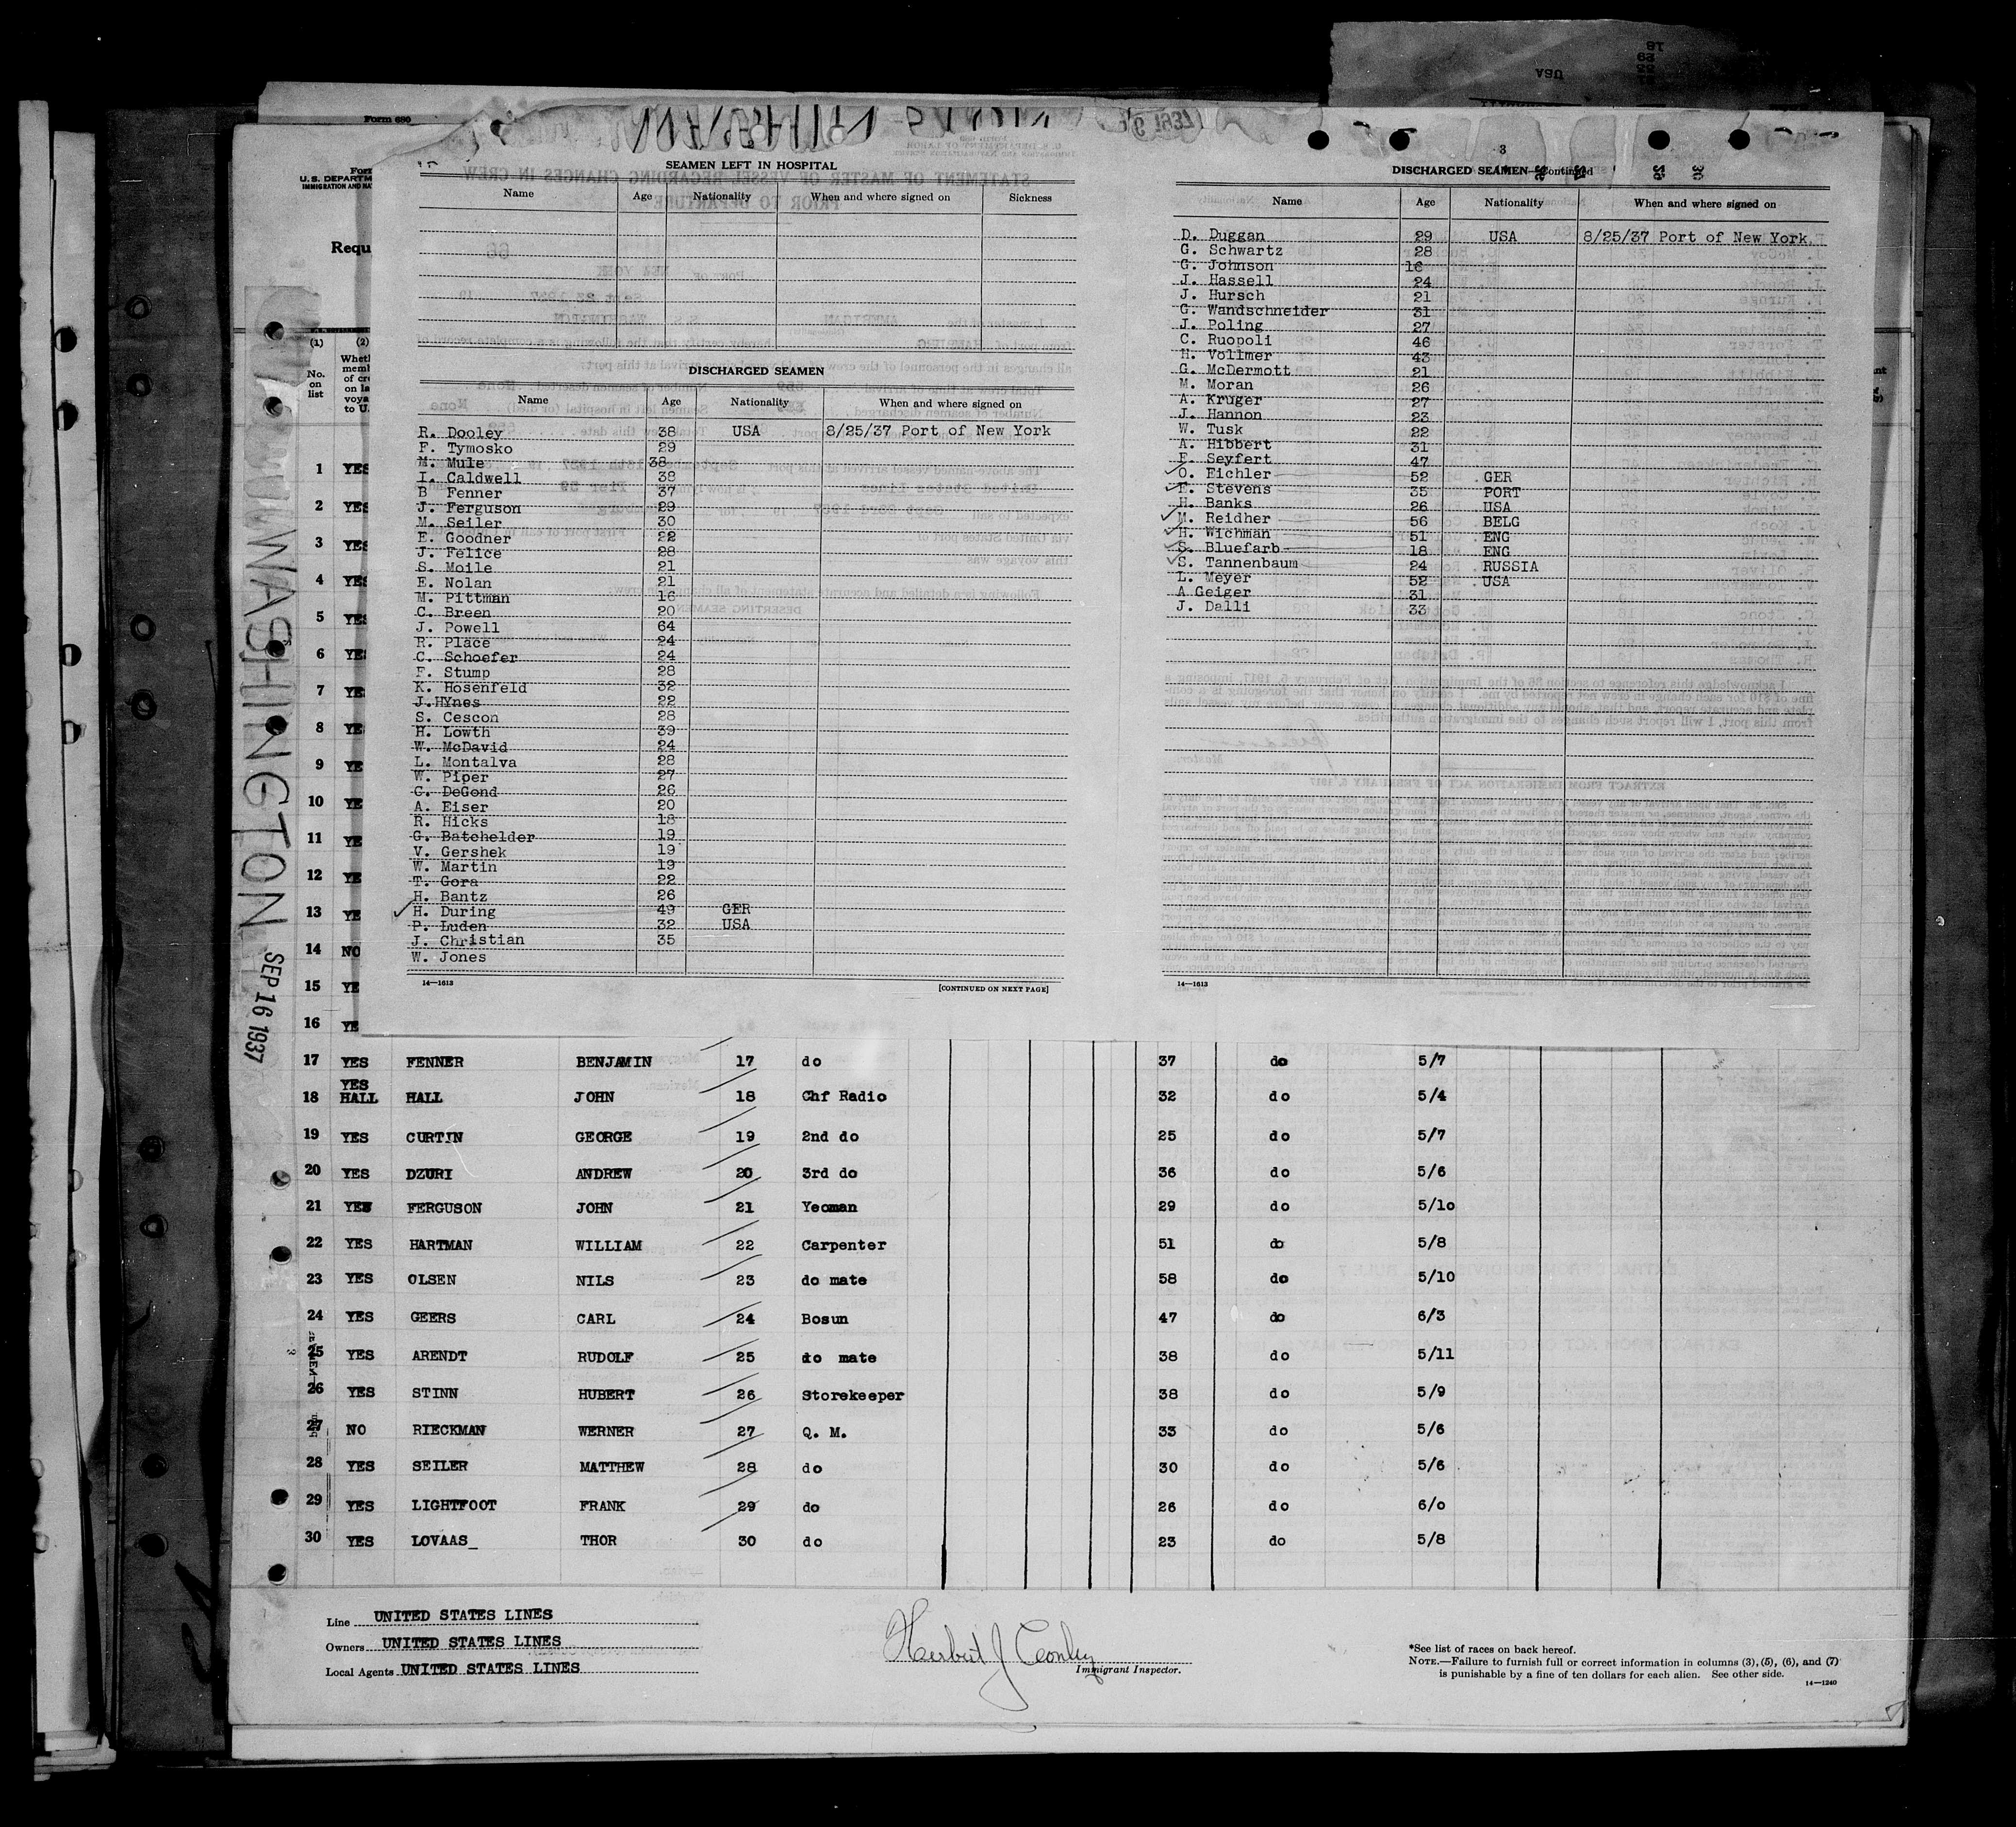 Form 680
U.S. DEPARTM
IMMIGRATION AND NA
Requ
WASHINGTON SEP 16 1937
SEAMEN LEFT IN HOSPITAL
Name Age Nationality When and where signed on Sickness
DISCHARGED SEAMEN
Name Age Nationality When and where signed on
R. Dooley 38 USA 8/25/37 Port of New York
F. Tymosko 29
M. Mule 38
I. Caldwell 38
B Fenner 37
J. Ferguson 29
M. Seiler 30
E. Goodner 22
J. Felice 28
S. Moile 21
E. Nolan 21
M. Pittman 16
C. Breen 20
J. Powell 64
R. Place 24
C. Schoefer 24
F. Stump 28
K. Hosenfeld 32
J.HYnes 22
S. Cescon 28
H. Lowth 39
W. McDavid 24
L. Montalva 28
W. Piper 27
C. DeGond 26
A. Eiser 20
R. Hicks 18
G. Batchelder 19
V. Gershek 19
W. Martin 19
T. Gora 22
H. Bantz 26
H. During 49 GER
P. Luden 32 USA
J. Christian 35
W. Jones
14—1613 [CONTINUED ON NEXT PAGE]
3
DISCHARGED SEAMEN—Continued
Name Age Nationality When and where signed on
D. Duggan 29 USA 8/25/37 Port of New York
G. Schwartz 28
G. Johnson 16
J. Hassell 24
J. Hursch 21
G. Wandschneider 31
J. Poling 27
C. Ruopoli 46
H. Vollmer 43
G. McDermott 21
M. Moran 26
A. Kruger 27
J. Hannon 23
W. Tusk 22
A. Hibbert 31
E. Seyfert 47
O. Eichler 52 GER
E. Stevens 35 PORT
H. Banks 26 USA
M. Reidher 56 BELG
H. Wichman 51 ENG
S. Bluefarb 18 ENG
S. Tannenbaum 24 RUSSIA
L. Meyer 52 USA
A Geiger 31
J. Dalli 33
14—1613
(1) (2)
No. on list
Whet
memb
of cr
on la
voya
to U.
1 YES
2 YES
3 YES
4 YES
5 YES
6 YE
7 YE
8 YE
9 YE
10 YE
11 YE
12 YE
13 YE
14 NO
15 YE
16 YE
17 YES FENNER BENJAMIN 17 do 37 do 5/7
YES
18 HALL HALL JOHN 18 Chf Radio 32 do 5/4
19 YES CURTIN GEORGE 19 2nd do 25 do 5/7
20 YES DZURI ANDREW 20 3rd do 36 do 5/6
21 YES FERGUSON JOHN 21 Yeoman 29 do 5/10
22 YES HARTMAN WILLIAM 22 Carpenter 51 do 5/8
23 YES OLSEN NILS 23 do mate 58 do 5/10
24 YES GEERS CARL 24 Bosun 47 do 6/3
25 YES ARENDT RUDOLF 25 do mate 38 do 5/11
26 YES STINN HUBERT 26 Storekeeper 38 do 5/9
27 NO RIECKMAN WERNER 27 Q. M. 33 do 5/6
28 YES SEILER MATTHEW 28 do 30 do 5/6
29 YES LIGHTFOOT FRANK 29 do 26 do 6/0
30 YES LOVAAS_ THOR 30 do 23 do 5/8
Line UNITED STATES LINES
Owners UNITED STATES LINES
Local Agents UNITED STATES LINES
Herbert J Conley
Immigrant Inspector.
*See list of races on back hereof.
NOTE.—Failure to furnish full or correct information in columns (3), (5), (6), and (7)
is punishable by a fine of ten dollars for each alien. See other side.
14—1240